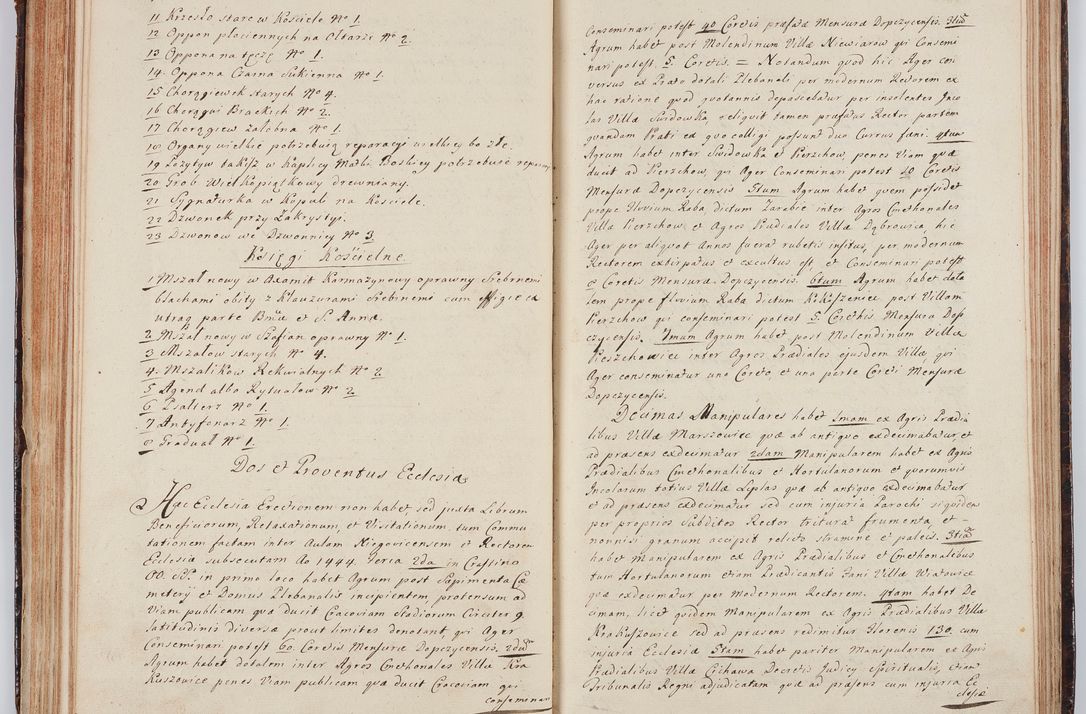 11 Krzesło stare w Kościele No 1.
12 Oppon płociennych na Ołtarze No 2.
13 Oppona na tęczę No 1.
14. Oppona Czarna Sukienna No 1.
15 Chorągiewek starych No 4.
16 Chorągwi Brackich No 2.
17 Chorągiew żałobna No 1.
18 Organy wielkie potrzebują reparacyi wielkiey bo złe.
19 Pozytyw także w Kaplicy Matki Boskiey potrzebuie reparacyi
20 Grob Wielkopiątkowy drewniany.
21 Sygnaturka w Kopule na Kościele.
22 Dzwonek przy Zakrystyi.
23 Dzwonow we Dzwonnicy No 3
Księgi Kościelne
1 Mszał nowy w Axamit Karmazynowy oprawny Srebrnemi
blachami obity z Klauzurami Srebrnemi cum effigie ex
utraq parte Bmæ et S. Annæ.
2 Mszał nowy w Szafian oprawny No 1.
3 Mszałow starych No 4.
4. Mszalikow Rekwialnych No 2
5 Agend albo Rytuałow No 2
6 Psałterz No 1.
7 Antyfonarz No 1.
8 Graduał No 1.
Dos et Proventus Ecclesiæ
Hæc Ecclesia Erectionem non habet sed juxta Librum
Beneficiorum, Retaxationum, et Visitationum, tum Commu
tationem factam inter Aulam Niegovicensem et Rectorem
Ecclesiæ subsecutam Ao 1444. Feria 2da in Crastino
OO. SS. in primo loco habet Agrum post Sapimenta Cæ
meterij et Domus Plebanalis incipientem, protensum ad
Viam publicam quæ ducit Cracoviam Stadiorum Circiter 9
latitudinis diversæ prout limites denotant, qui Ager
Conseminari potest 60. Coretis Mensuræ Dopczycensis. 2dum
Agrum habet dotalem inter Agros Cmethonales Villæ Kra
kuszowice penes Viam publicam quæ ducit Cracoviam qui
conseminari
Conseminari potest 40 Coretis præfatæ Mensuræ Dopczycensis. 3tium
Agrum habet post Molendinum Villæ Niewiarow qui Consemi
nari potest. 5 Coretis. = Notandum quod hic Ager con
versus ex Prato dotali Plebanali per modernum Rectorem ex
hac ratione quod quotannis depascebatur per insolentes Inco
las Villæ Swidowka, reliquit tamen præfatus Rector partem
quandam Prati ex quo colligi possunt duo Currus fæni. 4tum
Agrum habet inter Swidowka et Pierzchow, penes Viam quæ
ducit ad Pierzchow, qui Ager Conseminari potest 40 Coretis
Mensuræ Dopczycensis 5tum Agrum habet quem possidet
prope Fluvium Raba dictum Zarabie inter Agros Cmethonales
Villæ Pierzchow, et Agros Prædiales Villæ Dąbrowica, hic
Ager per aliquot Annos fuerat rubetis insitus, per modernum
Rectorem extirpatus et excultus est et Conseminari potest
8 Coretis Mensuræ Dopczycensis. 6tum Agrum habet dota
lem prope fluvium Raba dictum post Villam
Pierzchow qui conseminari potest 5 Coretis. Mensuræ Dop
czycensis. 7mum Agrum habet post Molendinum Villæ
Pieszchowice inter Agros Prædiales ejusdem Villæ qui
Ager conseminatur uno Coreto, et una parte Coreti Mensuræ
Dopczycensis.
Decimas Manipulares habet 1mam ex Agris Prædia
libus Villæ Marszowice quæ ab antiquo exdecimabatur et
ad præsens exdecimatur 2dam Manipularem habet ex Agris
Prædialibus Cmethonalibus et Hortulanorum et quorumvis
Incolarum totius Villæ Liplas quæ ab antiquo exdecimabatur
et ad præsens exdecimatur sed cum injuria Parochi siquidem
per proprios Subditos Rector triturat frumenta, et –
nonnisi granum accipit relicto stramine et paleis. 3tiam
habet Manipularem ex Agris Prædialibus et Cmethonalibus
tum Hortulanorum etiam Prædicantis Fani Villæ Wiatowice
quæ exdecimatur per Modernum Rectorem. 4tam habet De
cimam, licet quidem Manipularem ex Agris Prædialibus Villæ
Krakuszowice sed ad præsens redimitur Florenis 130. cum
injuria Ecclesiæ 5tam habet pariter Manipularem ex Agris
Prædialibus Villæ Cichawa Decretis Judicij Spiritualis, etiam
Tribunalis Regni adjudicatam quæ ad præsens cum injuria Ec
clesiæ